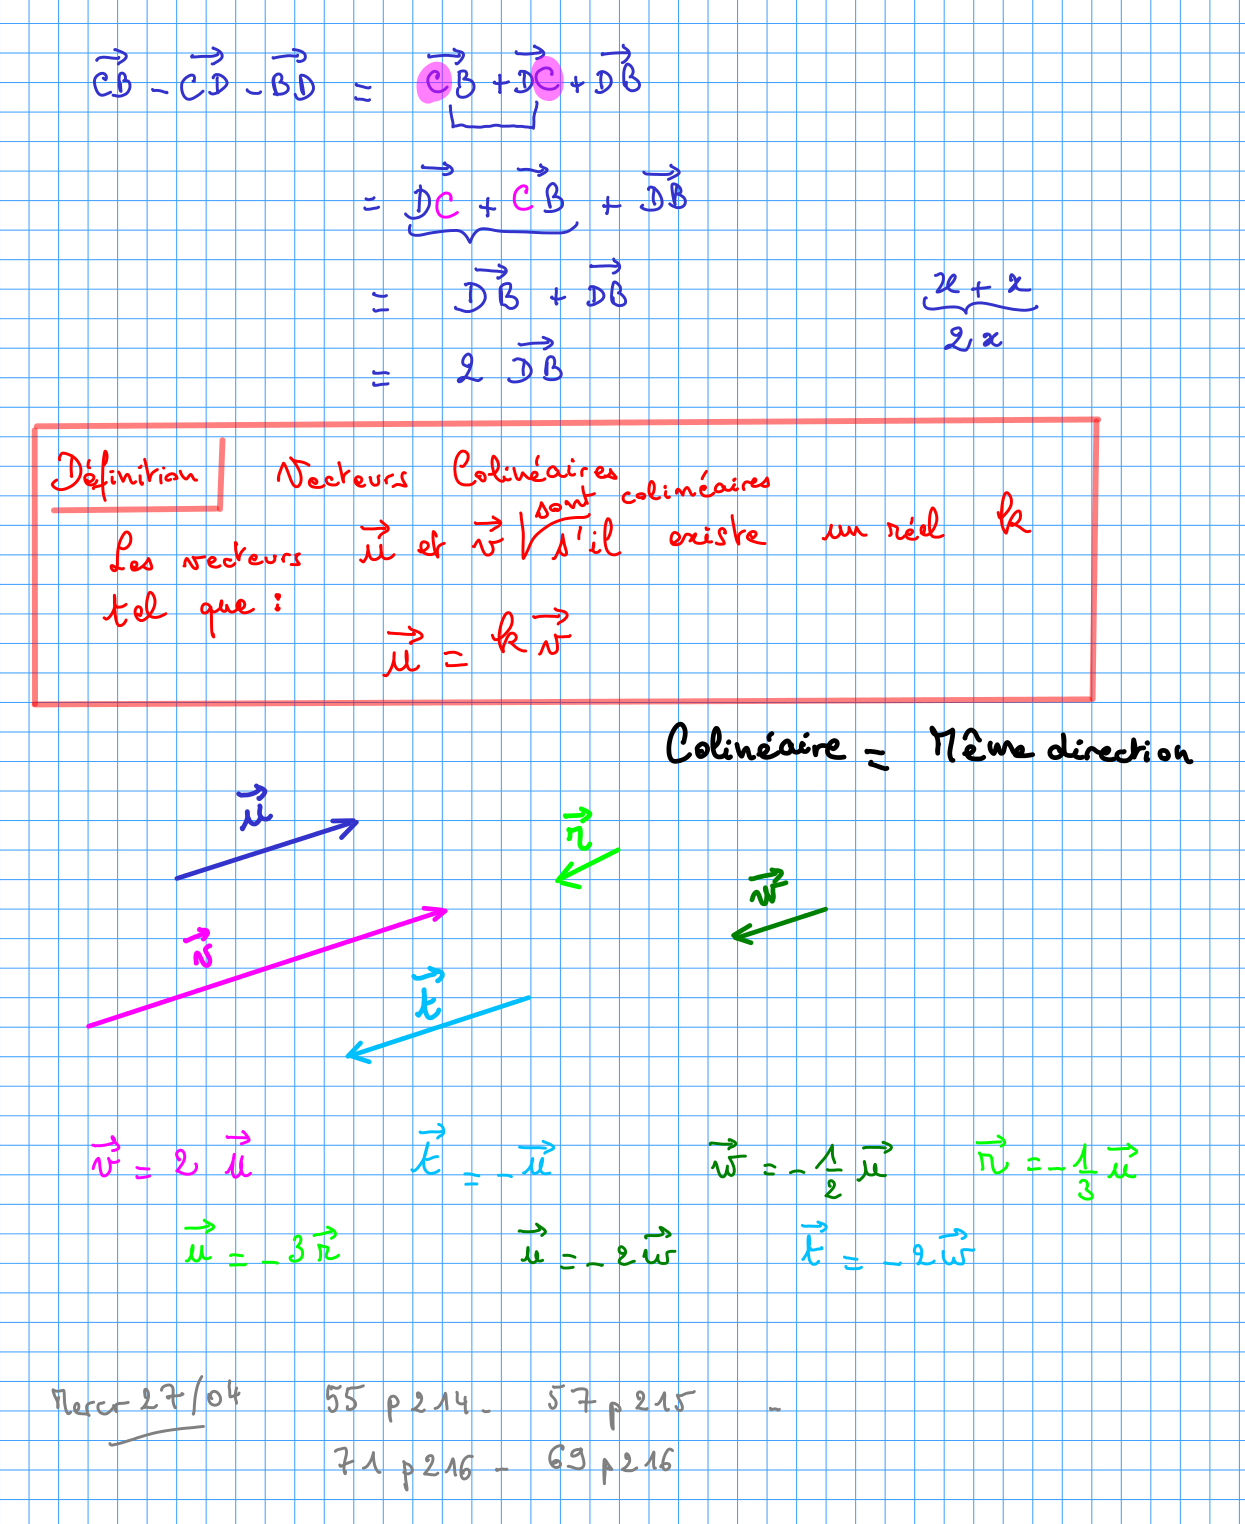 CB⃗ - CD⃗ - BD⃗ = CB⃗ + DC⃗ + DB⃗
= DC⃗ + CB⃗ + DB⃗
= DB⃗ + DB⃗
x + x
2x
= 2 DB⃗
Définition Vecteurs Colinéaires
Les vecteurs u⃗ et v⃗ sont colinéaires s'il existe un réel k
tel que :
u⃗ = k v⃗
Colinéaire = Même direction
u⃗
r⃗
w⃗
v⃗
t⃗
v⃗ = 2 u⃗ t⃗ = - u⃗ w⃗ = - 1/2 u⃗ r⃗ = - 1/3 u⃗
u⃗ = - 3 r⃗ u⃗ = - 2 w⃗ t⃗ = - 2 w⃗
Mercr 27/04 55 p 214 - 57 p 215 -
71 p 216 - 69 p 216